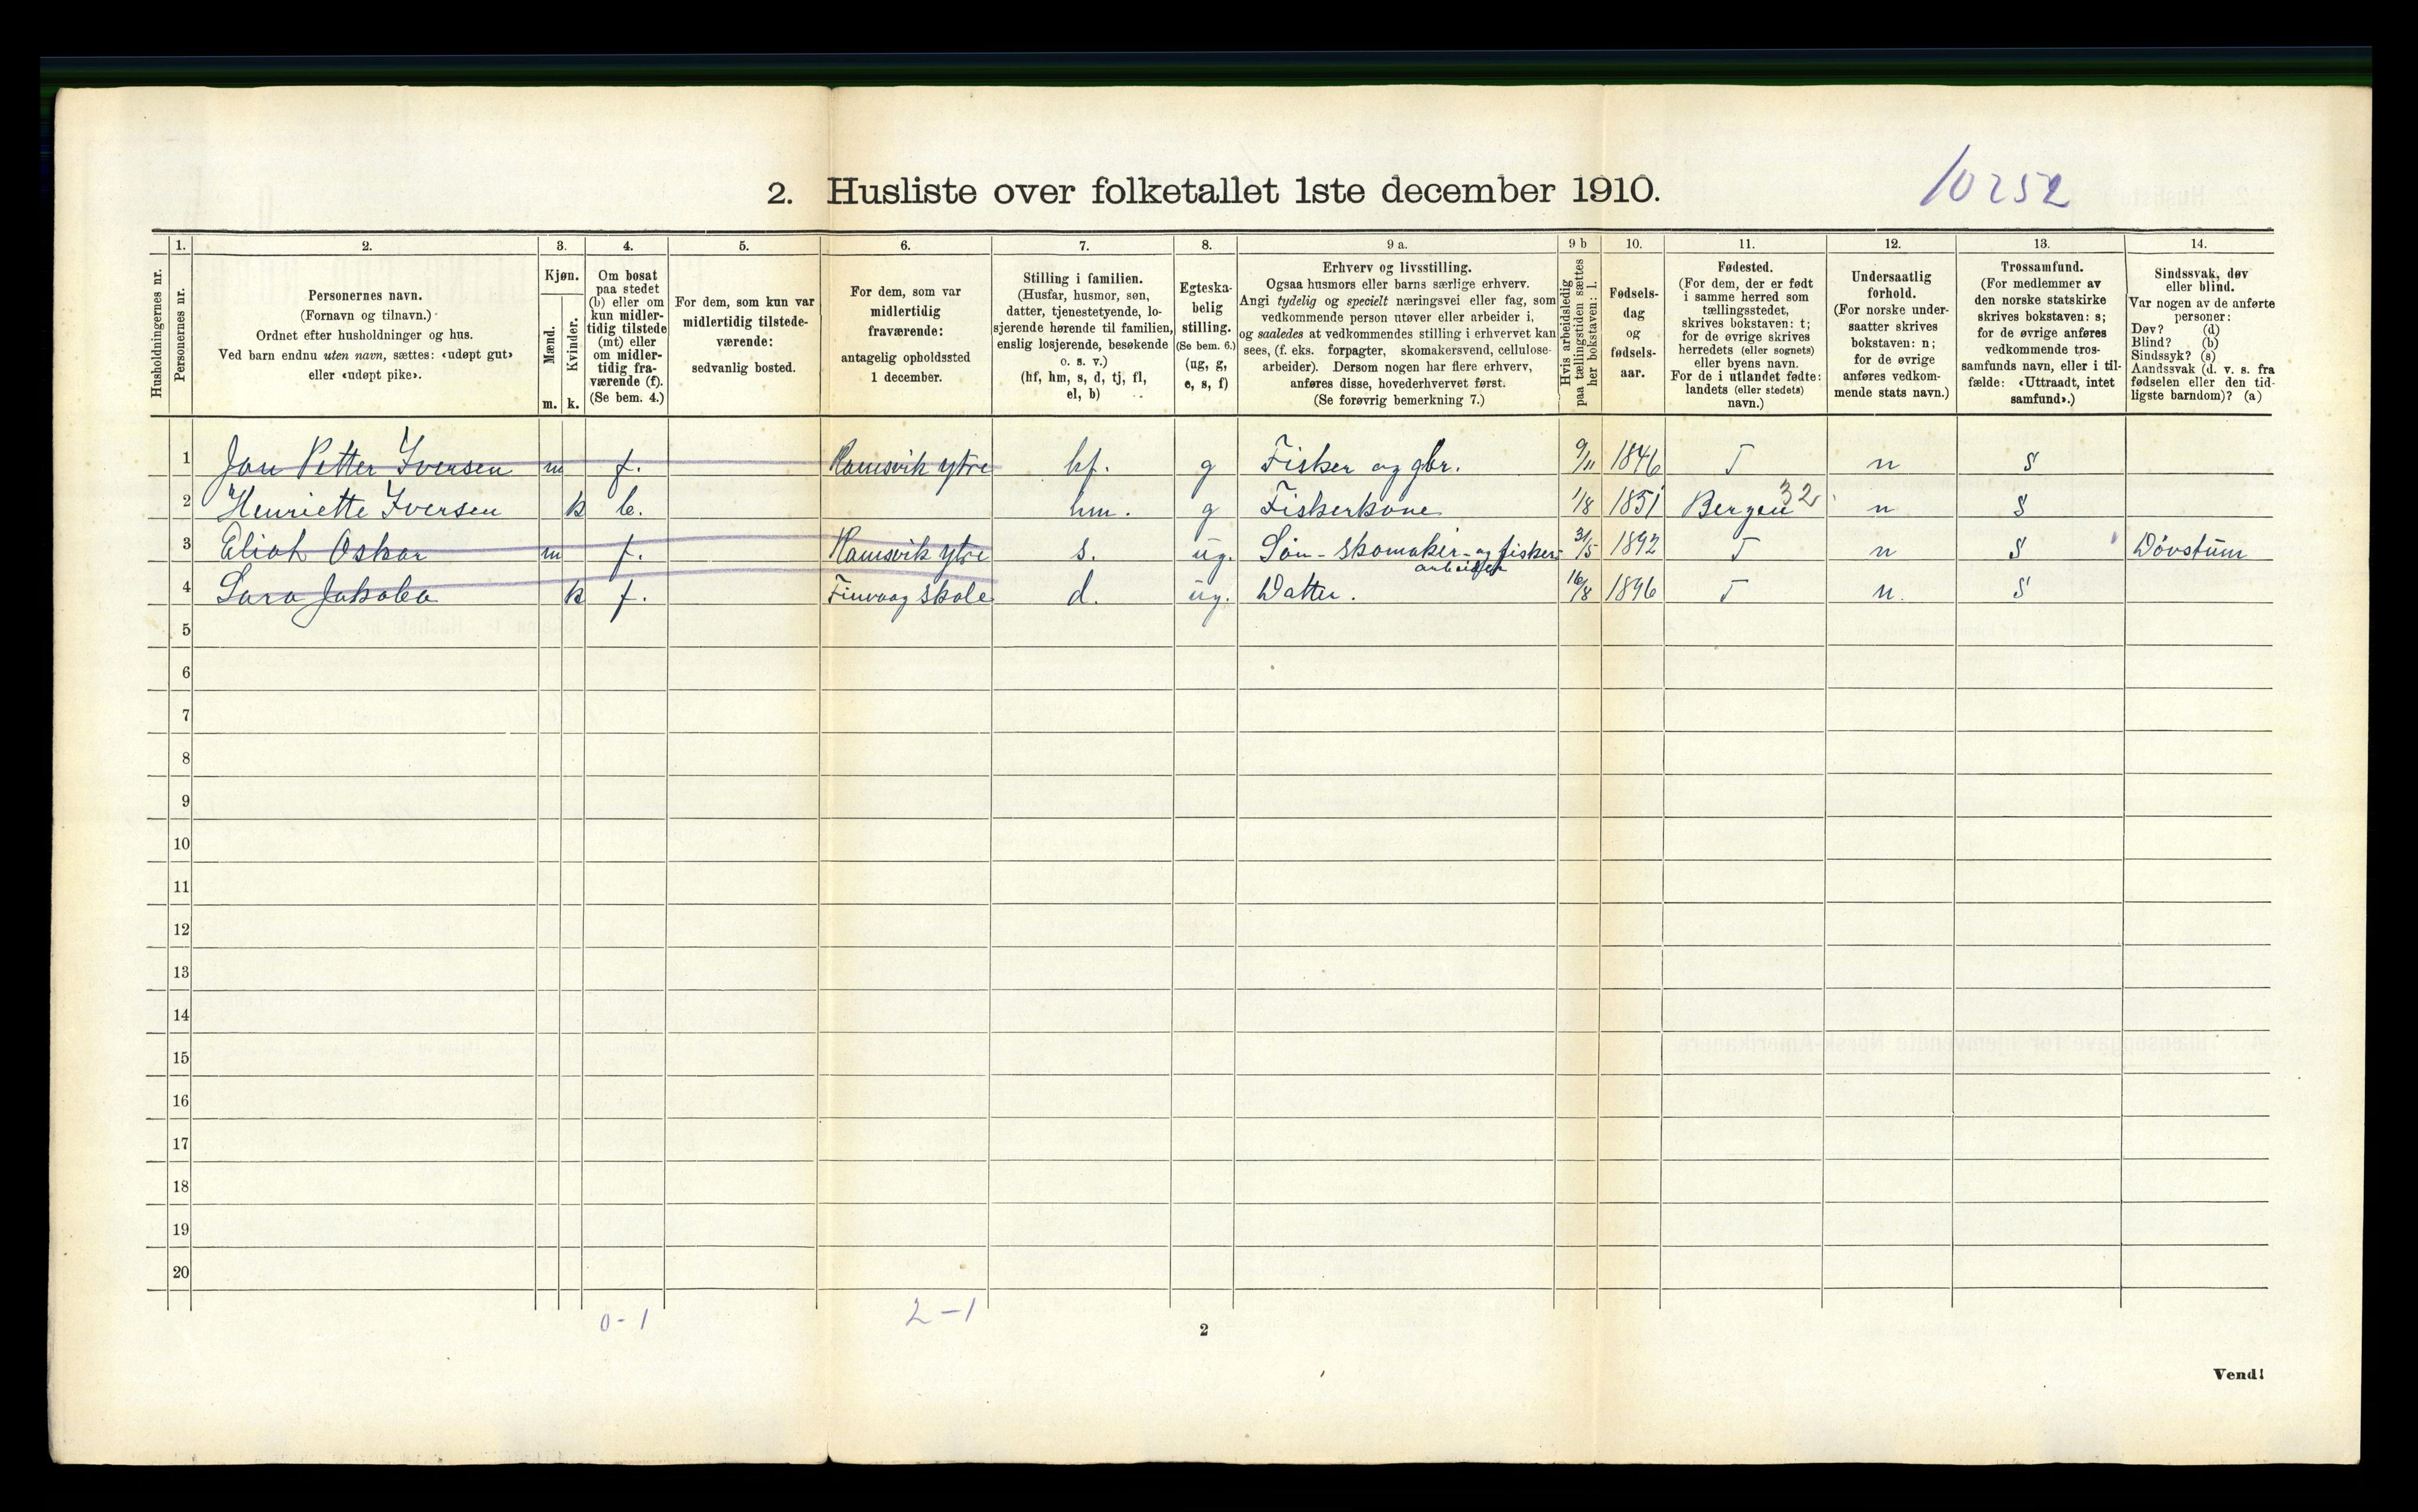 2. Husliste over folketallet 1ste december 1910.
10252
Husholdningernes nr.
1.
Personernes nr.
2.
Personernes navn.
(Fornavn og tilnavn.)
Ordnet efter husholdninger og hus.
Ved barn endnu uten navn, sættes: «udøpt gut»
eller «udøpt pike».
3.
Kjøn.
Mænd.
Kvinder.
m. k.
4.
Om bosat
paa stedet
(b) eller om
kun midler-
tidig tilstede
(mt) eller
om midler-
tidig fra-
værende (f).
(Se bem. 4.)
5.
For dem, som kun var
midlertidig tilstede-
værende:
sedvanlig bosted.
6.
For dem, som var
midlertidig
fraværende:
antagelig opholdssted
1 december.
7.
Stilling i familien.
(Husfar, husmor, søn,
datter, tjenestetyende, lo-
sjerende hørende til familien,
enslig losjerende, besøkende
o. s. v.)
(hf, hm, s, d, tj, fl,
el, b)
8.
Egteska-
belig
stilling.
(Se bem. 6.)
(ug, g,
e, s, f)
9 a.
Erhverv og livsstilling.
Ogsaa husmors eller barns særlige erhverv.
Angi tydelig og specielt næringsvei eller fag, som
vedkommende person utøver eller arbeider i,
og saaledes at vedkommendes stilling i erhvervet kan
sees, (f. eks. forpagter, skomakersvend, cellulose-
arbeider). Dersom nogen har flere erhverv,
anføres disse, hovederhvervet først.
(Se forøvrig bemerkning 7.)
9 b
Hvis arbeidsledig
paa tællingstiden sættes
her bokstaven: l.
10.
Fødsels-
dag
og
fødsels-
aar.
11.
Fødested.
(For dem, der er født
i samme herred som
tællingsstedet,
skrives bokstaven: t;
for de øvrige skrives
herredets (eller sognets)
eller byens navn.
For de i utlandet fødte:
landets (eller stedets)
navn.)
12.
Undersaatlig
forhold.
(For norske under-
saatter skrives
bokstaven: n;
for de øvrige
anføres vedkom-
mende stats navn.)
13.
Trossamfund.
(For medlemmer av
den norske statskirke
skrives bokstaven: s;
for de øvrige anføres
vedkommende tros-
samfunds navn, eller i til-
fælde: «Uttraadt, intet
samfund».)
14.
Sindssvak, døv
eller blind.
Var nogen av de anførte
personer:
Døv? (d)
Blind? (b)
Sindssyk? (s)
Aandssvak (d. v. s. fra
fødselen eller den tid-
ligste barndom)? (a)
1 Jan Petter Iversen m f. Hamsvik ytre hf. g Fisker og gbr. 9/11 1846 T n S
2 Henriette Iversen k b. hm. g Fiskerkone 1/8 1851 Bergen 32 n S
3 Eliot Oskar m f. Hamsvik ytre s. ug. Søn - skomaker- og fisker- 31/5 1892 T n S Døvstum
arbeider
4 Sara Jakoba k f. Finvaag skole d. ug. Datter. 16/8 1896 T n. S
5
6
7
8
9
10
11
12
13
14
15
16
17
18
19
20
0-1
2-1
2
Vend!